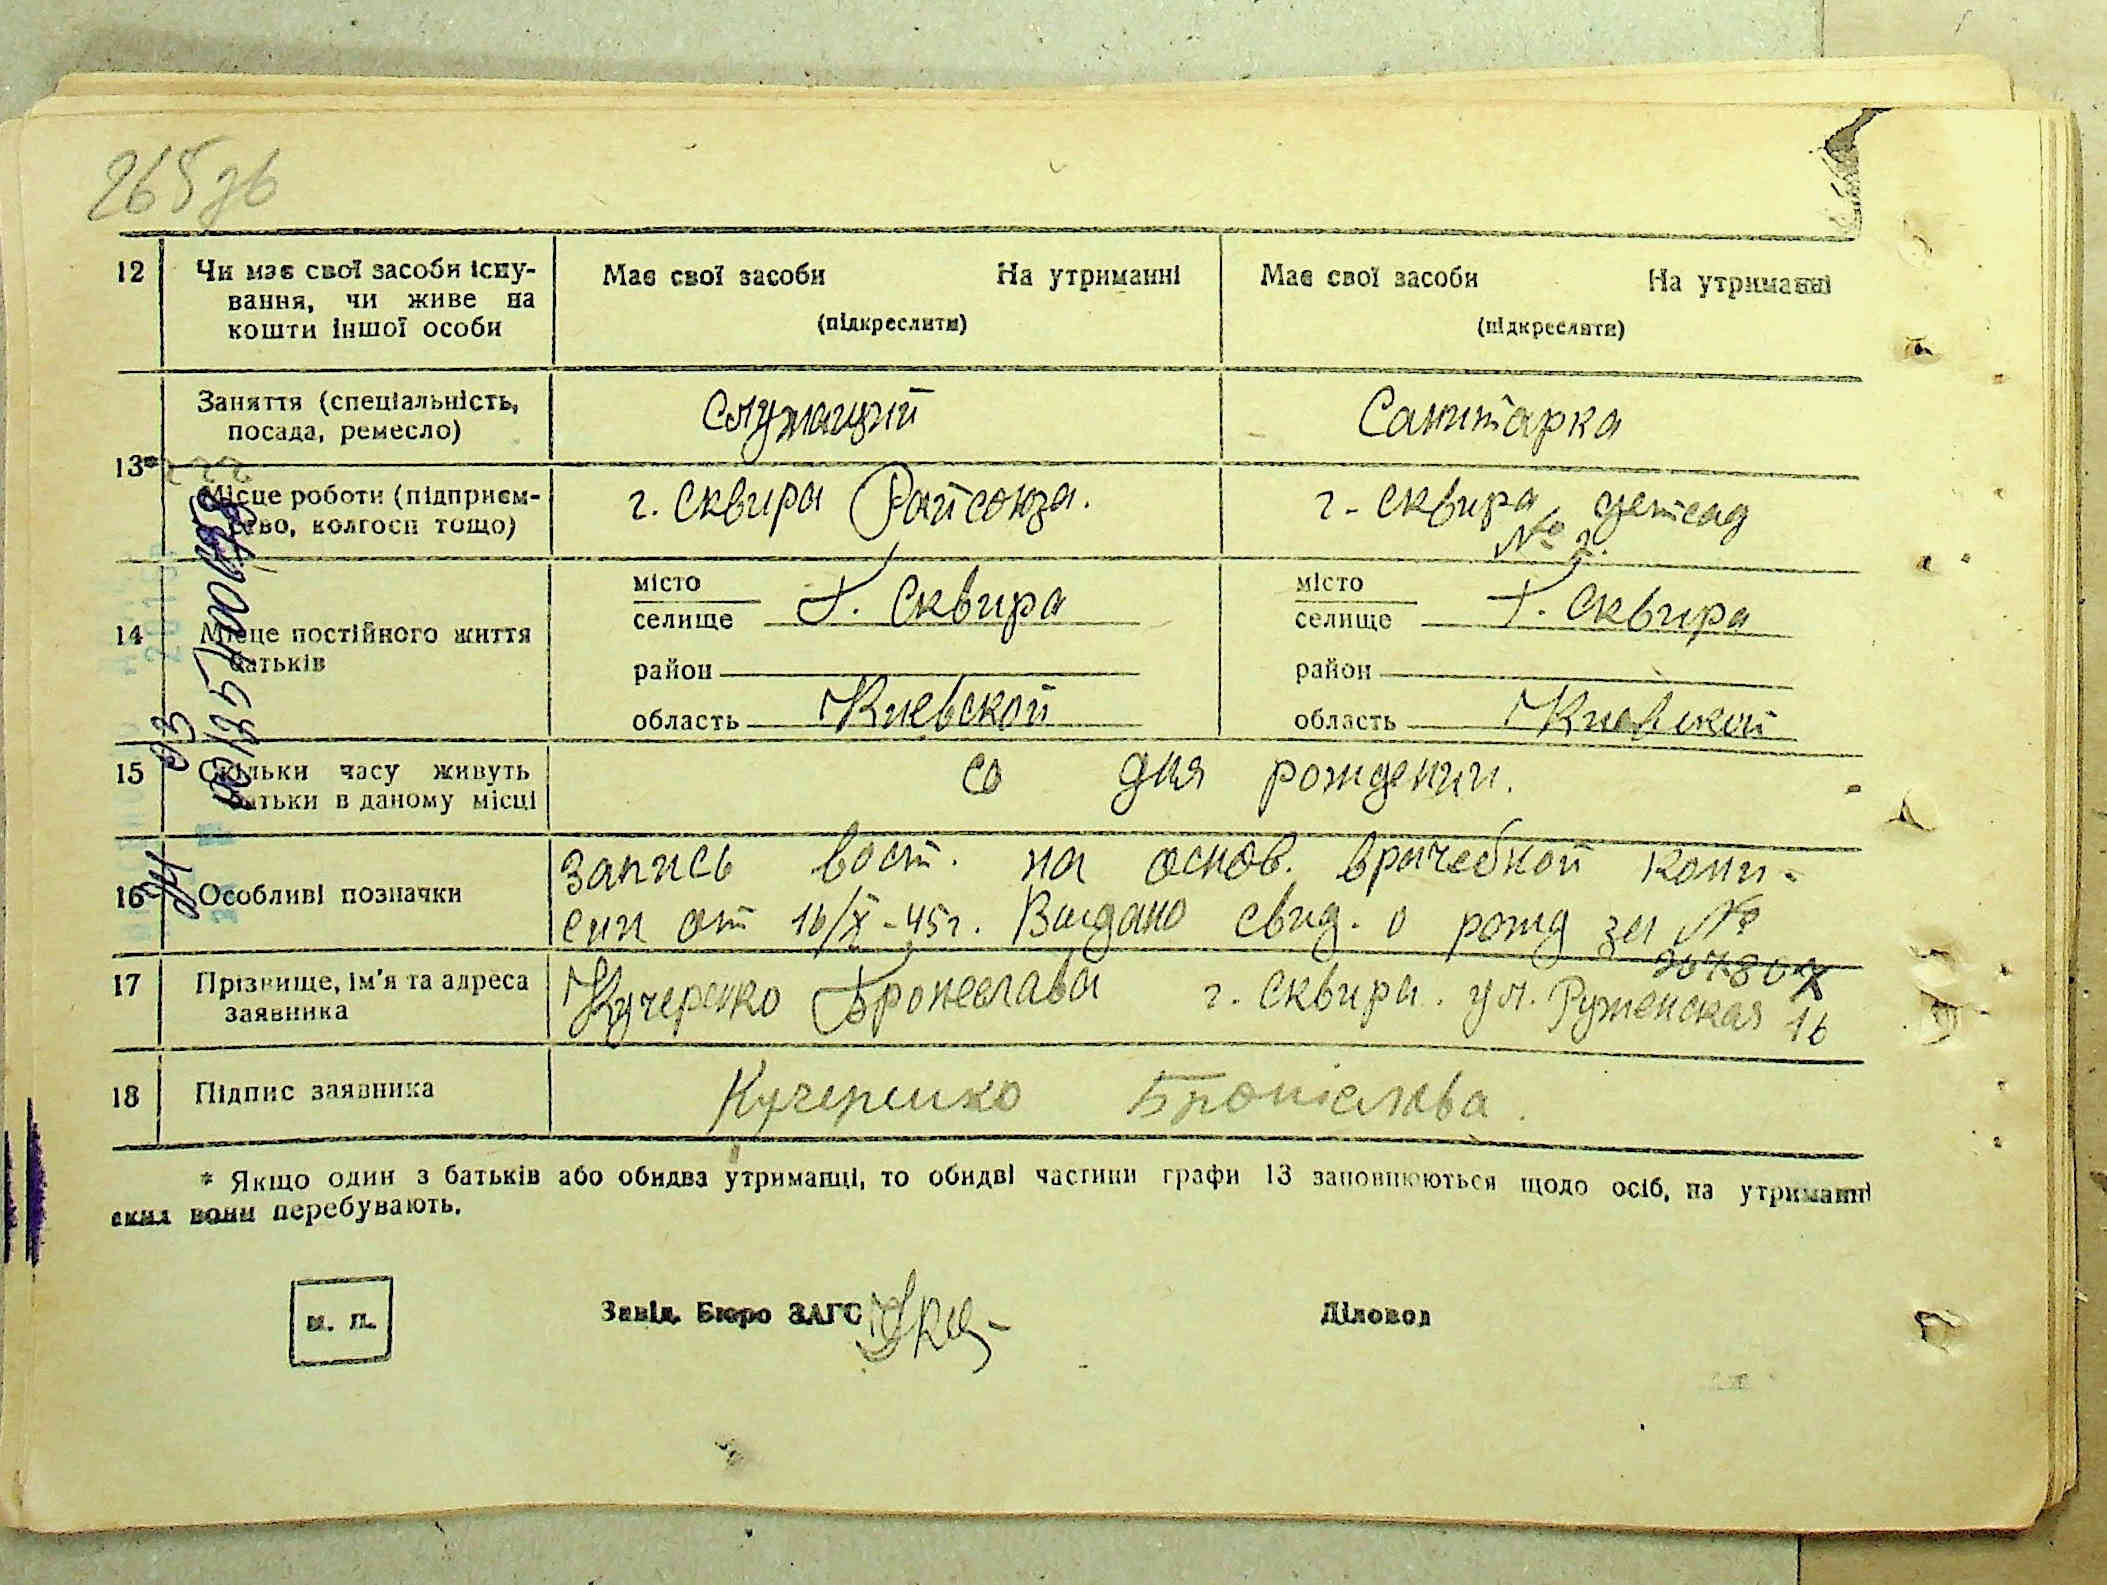 265зв
12 Чи має свої засоби існу-
вання, чи живе на
кошти іншої особи
Має свої засоби На утриманні
(підкреслити)
Має свої засоби На утриманні
(підкреслити)
13*
Заняття (спеціальність,
посада, ремесло)
служащий
Санитарка
Місце роботи (підприєм-
ство, колгосп тощо)
г. Сквира Райсоюза.
г. Сквира детсад
№ 2.
14 Місце постійного життя
батьків
місто
селище Г. Сквира
район
область Киевской
місто
селище Г. Сквира
район
область Киевской
15 Скільки часу живуть
батьки в даному місці
со дня рождении.
16 Особливі позначки
Запись вост. на основ. врачебной коми-
сии от 16/X-45г. Выдано свид. о рожд за №
17 Прізвище, ім'я та адреса
заявника
Кучеренко Бронеслава г. Сквира. ул. Руженская 16
18 Підпис заявника
Кучеренко Броніслава.
* Якщо один з батьків або обидва утриманці, то обидві частини графи 13 заповнюються щодо осіб, на утриманні
яких вони перебувають.
м. п.
Завід. Бюро ЗАГС
Діловод